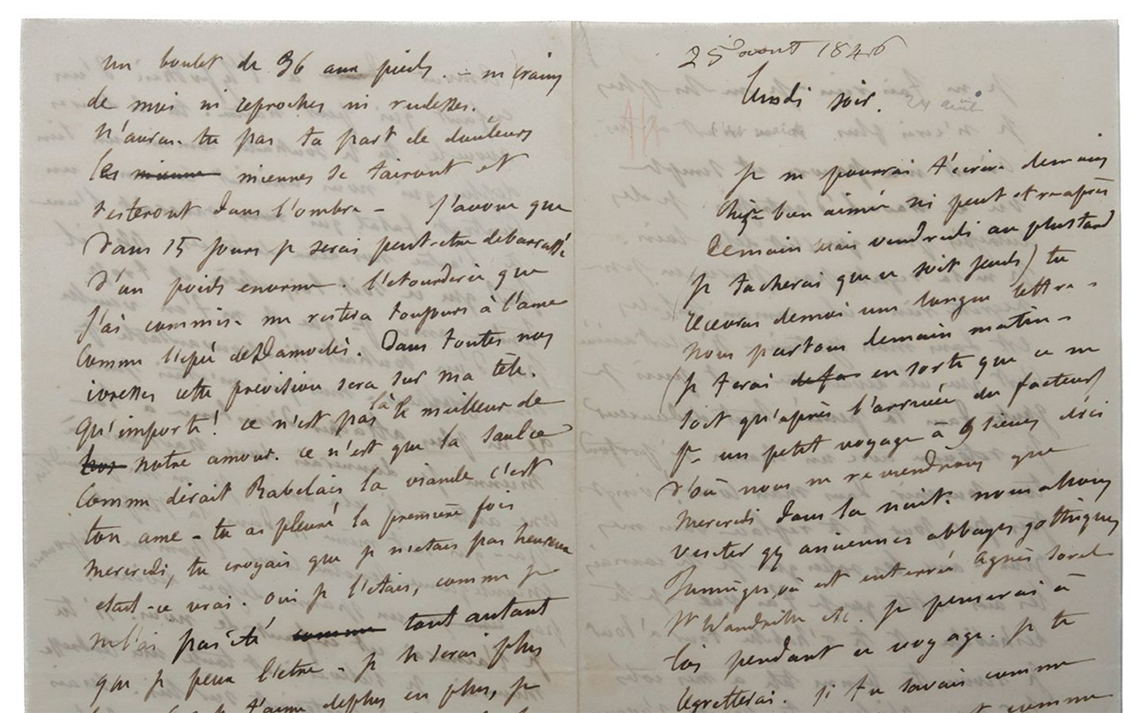 un boulet de 36 aux pieds. – ne crains
de moi ni reproches ni rudesses.
N'auras-tu pas ta part de douleurs
les mienne miennes se tairont et
resteront dans l'ombre – J'avoue que
dans 15 jours je serai peut-etre debarrassé
d'un poids enorme. l'etourderie que
j'ai commise me restera toujours à l'ame
comme l'epée de Damoclès. Dans toutes nos
ivresses cette prévision sera sur ma tête.
Qu'importe! ce n'est pas là le meilleur de
notre amour. ce n'est que la saulce
comme dirait Rabelais la viande c'est
ton ame – tu as pleuré la première fois
mercredi, tu croyais que je n'etais pas heureux
etait-ce vrai. oui je l'étais, comme je
ne l'ai pas été comme tout autant
que je peux l'etre – je le serai plus
je t'aime de plus en plus, je
25 aout 1846
Lundi soir. 24 août
je ne pourrai t'écrire demain
chère bien aimée ni peut etre après
demain mais vendredi au plus tard
(je tacherai que ce soit jeudi) tu
recevras de moi une longue lettre –
Nous partons demain matin –
(je ferai de fa en sorte que ce ne
soit qu'après l'arrivée du facteur)
pr un petit voyage à 9 lieues d'ici
d'où nous ne reviendrons que
mercredi dans la nuit. nous allons
visiter qq anciennes abbayes gothiques
Jumièges, où est enterrée Agnès Sorel
St Wandrille etc. je penserai à
toi pendant ce voyage. je te
regretterai. si tu savais comme
comme